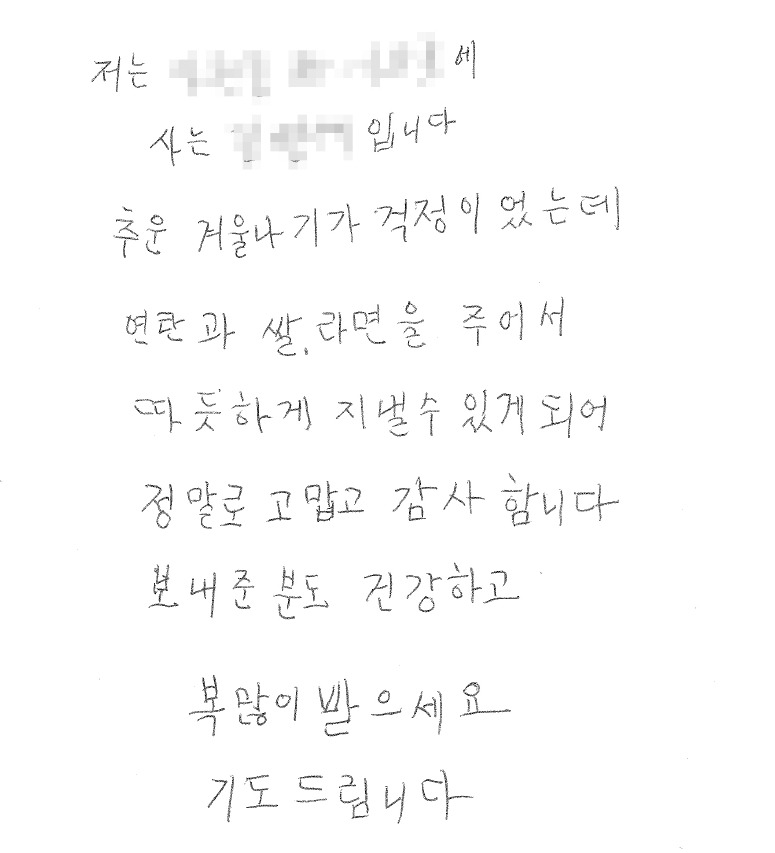 저는 에
사는 입니다
추운 겨울나기가 걱정이었는데
연탄과 쌀, 라면을 주어서
따듯하게 지낼수 있게되어
정말로 고맙고 감사 함니다
보내준 분도 건강하고
복많이 받으세요
기도드립니다